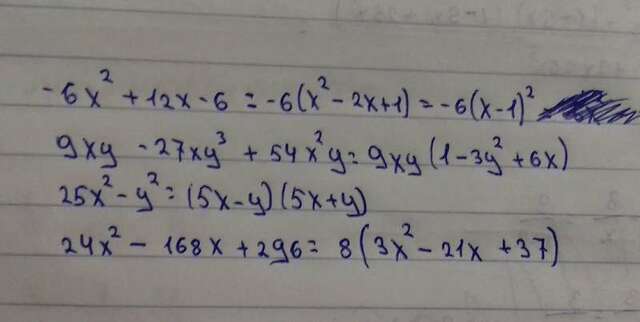 -6x² + 12x - 6 = -6(x² - 2x + 1) = -6(x - 1)²
9xy - 27xy³ + 54x²y = 9xy(1 - 3y² + 6x)
25x² - y² = (5x - y)(5x + y)
24x² - 168x + 296 = 8(3x² - 21x + 37)